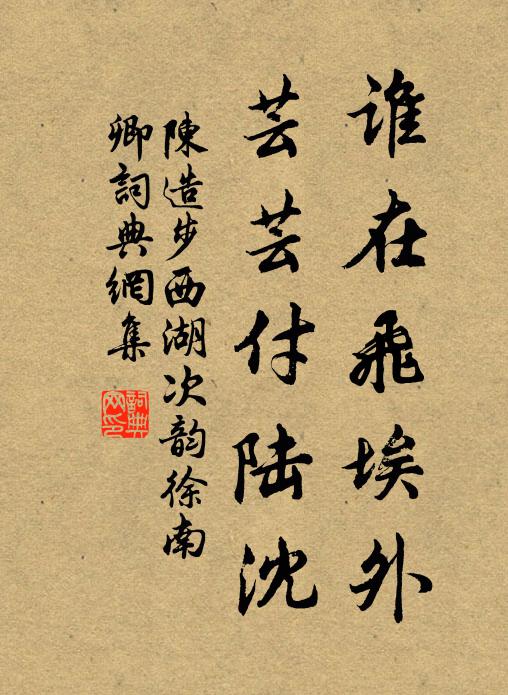 谁在飛埃外
芸芸付陆沈
陳造步西湖次韵徐南
卿詞典網集
詞典
网印